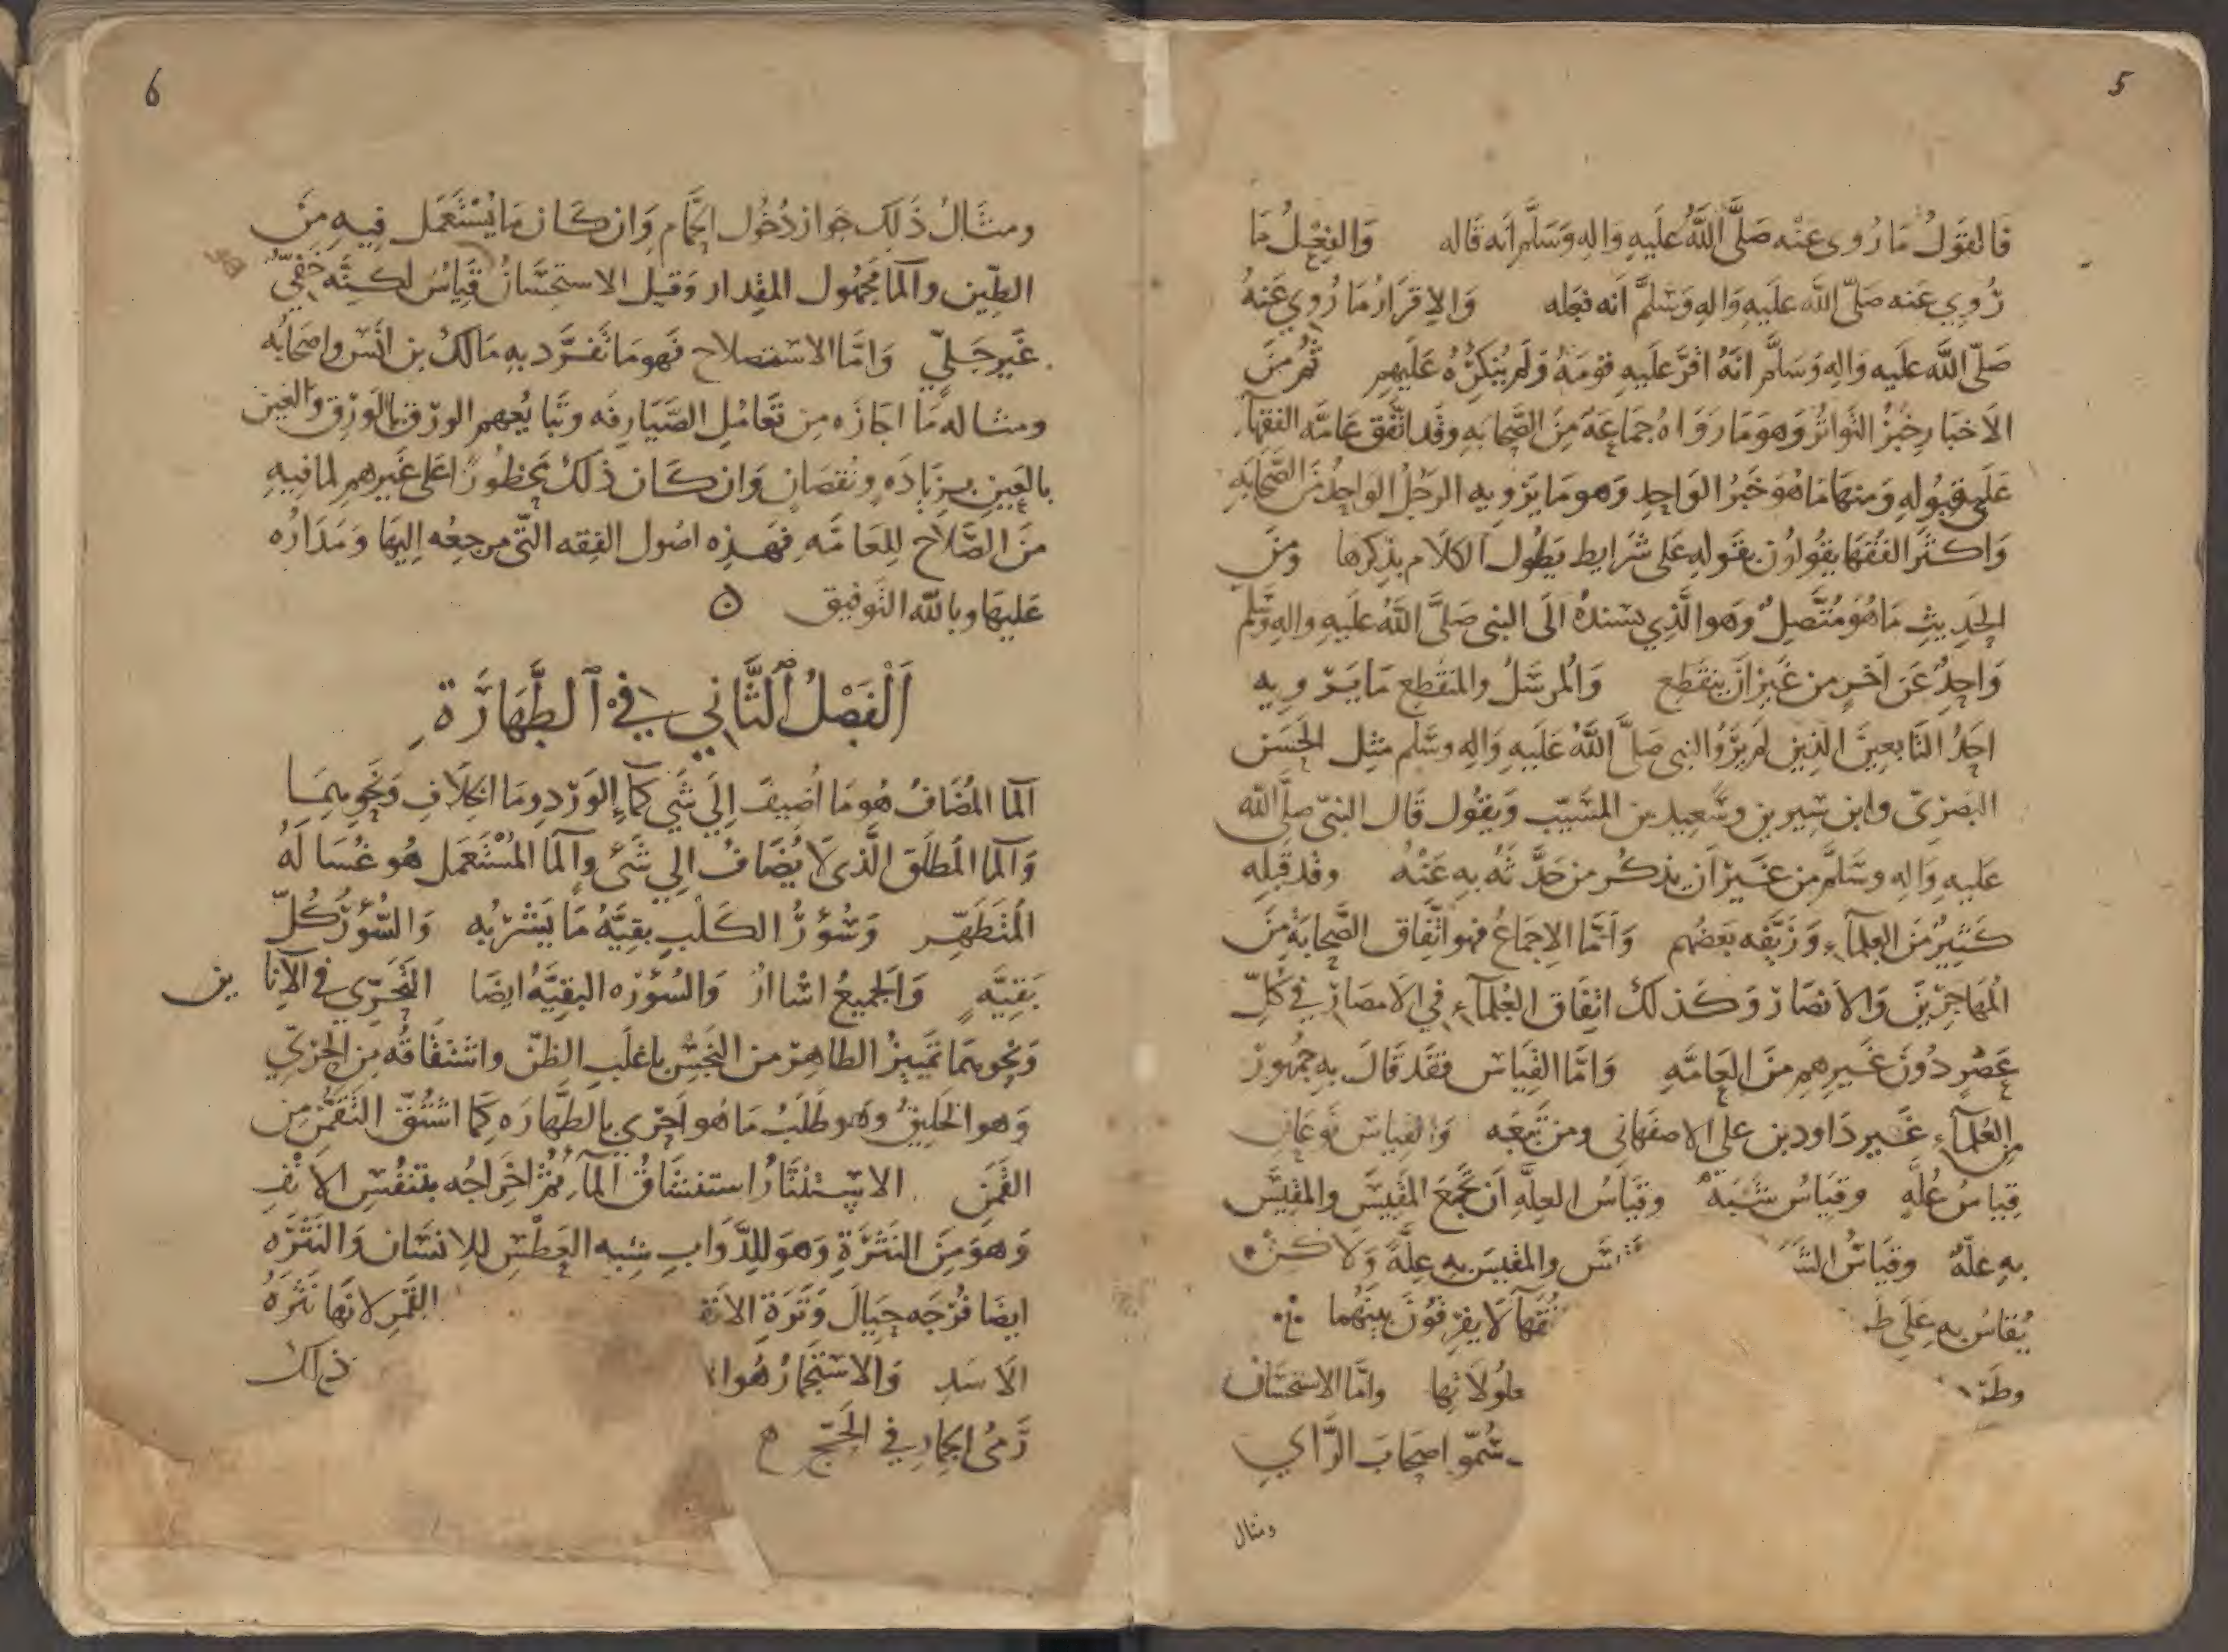 5
فالقَولُ مَا رُوي عَنْه صَلَّى اللَّهُ علَيهِ وَالِهِ وَسَلَّم اَنه قاله وَالفِعْلُ مَا
رُوِي عَنه صَلّى اللَّه علَيهِ وَالِهِ وَسَلَّم اَنه فعَله وَالاِقرَارُ مَا رُوِي عَنهُ
صَلّى اللَّه علَيه وَالِهِ وَسَلَّم انَّهُ اقرَّ علَيهِ قومَهُ وَلَم يُنكِرُهُ عَلَيهِم ثُم مِنَ
الاَخبَارِ خبَرُ التواتُرُ وَهوَ مَا رَوَاهُ جمَاعَةٌ مِنَ الصَّحَابهِ وقَد اتَّفق عَامَّه الفقهآء
عَلَى قبُولهِ وَمنهَا مَا هُوَ خَبَرُ الوَاحِدِ وَهو مَا يَروِيهِ الرجُل الواحِدُ مِنَ الصَّحابَهِ
وَاكثَر الفُقَهَا يقُولُون بقَبولهِ عَلى شرَايط يَطُول الكلام بذِكرِها ومنَ
الحَديثِ مَا هُوَ مُتَّصِلٌ وَهو الَّذِي يسندُهُ الَى النبى صَلَّى اللَّهُ علَيهِ والِهِ وسَلَّم
وَاحِدٌ عَن آخَرٍ من غَير اَن ينقَطِع وَالمُرسَلُ والمنقَطِع مَا يَروِيهِ
احَدُ التَابعِينَ الذينَ لَم يرَوُا النبى صَلَّى اللَّهُ عَلَيهِ وَالِهِ وسَلَّم مثِل الحَسَن
البَصرِىّ وابن سِيرين وسَعِيد بن المسَيّب وَيقُول قَال النبىّ صلَّى اللَّه
علَيهِ وَالِهِ وسَلَّم من غَير اَن يذكر من حَدَّثهُ بهِ عَنْهُ وقد قَبِلهِ
كَثيرٌ مِنَ العلمآءِ وَزَيَّفه بَعضُهم وَامَّا الاِجمَاعُ فهو اتّفاق الصَّحابَةِ مِنَ
المُهَاجِرِينَ وَالانصَار وَكَذلكَ اتِفَاق العُلمآءِ في الامصَارِ في كُلّ
عَصْرٍ دُونَ غَيرهِم مِنَ العَامَّهِ وَامَّا القِيَاس فقَد قَالَ بهِ جُمهُور
مِن العُلمآءِ غَير دَاود بن على الاصفَهانى ومن تَبِعَه وَالقياس نَوعَان
قِيَاسُ عِلَّهٍ وقيَاسُ شَبَهٍ وقيَاسُ العِلَّهِ اَن تَجمَع المَقيسَ والمقيسَ
بهِ علّهٌ وقيَاسُ الشَ والمقيسَ بهِ عِلَّهٌ وَلاكن
يُقاسُ بهِ عَلَى ط قهآ لاَ يفرِقُونَ بينَهُما
وطَر مَعلُولاتِها وامَّا الاستحسَان
سُمّوا اصحَابَ الرَّاي
ومثال
6
ومثَالُ ذَلكَ جَواز دُخُول الحَمَّام وَان كَان مَا يُسْتَعمَل فِيهِ مِنَ
الطِّين والمآ مجهُول المقِدار وَقيل الاستحِسَانُ قِيَاسٌ لكنَّه خَفِىٌّ
غَير جَليّ وَامَّا الاستصلاح فَهو مَا تفَرَّد بهِ مَالك بن انَس واصحَابُه
ومثاله مَا اجَازَه مِن تَعَامُلِ الصَّيَارِفَه وتَبايُعهِم الورِق بالوَرِق وَالعَين
بالعَين بزِيَادَهٍ ونُقصَانٍ وَان كَان ذلكَ محظُورًا على غَيرهم لما فيهِ
مِنَ الصَّلاَح للِعَامَّهِ فهَذِه اصُول الفِقه الَّتي مرجعُه اِليَها وَمَدَارُه
عَليهَا وبالله التوفيق
اَلْفَصْلُ الثَّانِي فِي الطَّهَارَةِ
المآ المُضَافُ هُو مَا اُضِيفَ اِلَى شَي كمآءِ الوَردِ ومَا الخِلاَفِ وَنحوِهمَا
وَالمآ المُطلَق الَّذى لاَ يُضَافُ الي شَئ والمآ المُسْتَعمَل هُو غُسَالَهُ
المُتَطَهِّر وَسُؤرُ الكَلْبِ بقيَّهُ مَا يَشْربُه وَالسُّؤرُ كُلّ
بَقِيَّهٍ وَالجَميعُ اسْاارٌ وَالسُؤره البَقيَّهُ ايضَا التَحَرِّي في الآنا ين
وَنحوِهمَا تَميِيزُ الطاهِر من النجِس باغلَب الظنّ واشتقاقُه مِن الحَرِيّ
وَهو الخليقُ وهُو طَلَبُ مَا هُو اَحرَى بالطَّهَارَه كَمَا اشتُقّ التَقَمُّن مِن
القَمِن الاِسْتنثَارُ استِنشَاقُ المآءِ ثُمَّ اخرَاجُه بتَنفُس الانْفِ
وَهوَ مِنَ النَثْرَةِ وَهوَ للِدَّوَابِ شِبه العَطْسِ لِلاِنسَان وَالنَثرَه
ايضَا فُرْجَه حِيَالَ وَتَرَةِ الانف القَمَر لانهَّا نَثرَهُ
الاَسَدِ وَالاستجمَارُ هُو ا ذلكَ
رَمىُ الجِمَارِ في الحَجِّ ه